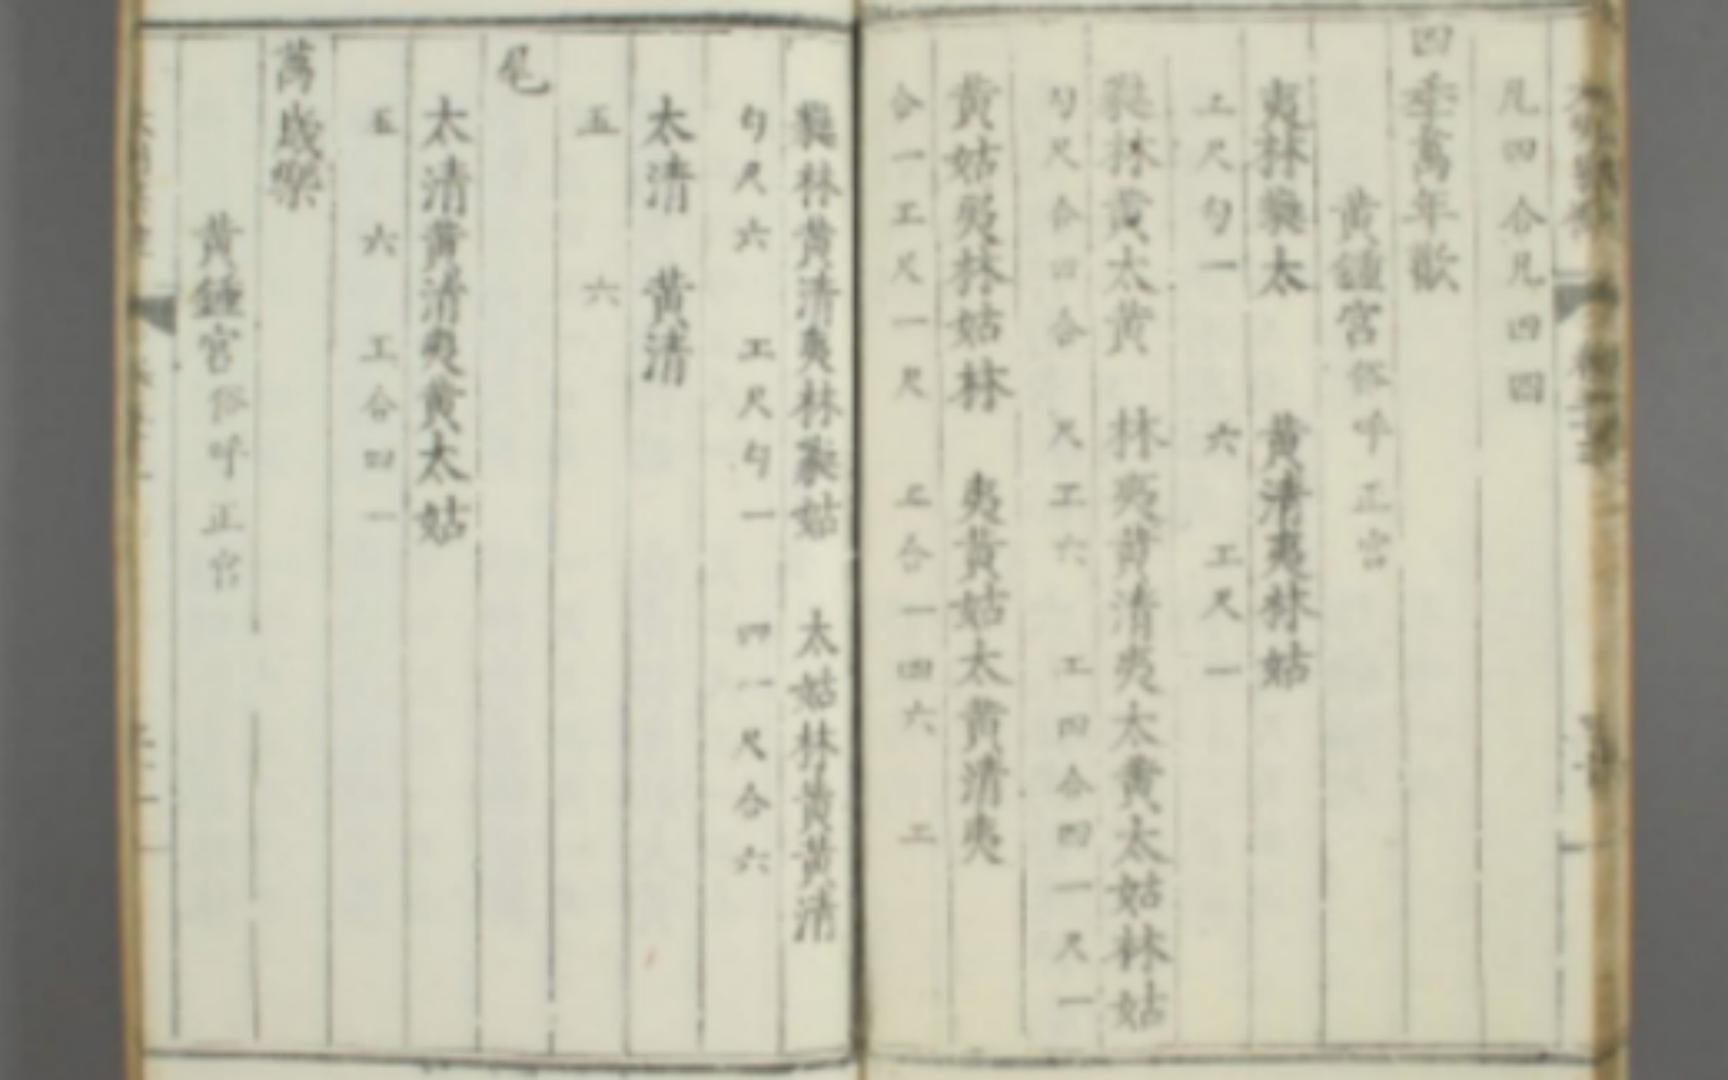 凡四合凡四四
四季萬年歡
黃鍾宮俗呼正宮
夷林蕤太 黃清夷林姑
工尺勾一 六 工尺一
蕤林黃太黃 林夷黃清夷太黃太姑林姑
勾尺合四合 尺工六 工四合四一尺一
黃姑夷林姑林 夷黃姑太黃清夷
合一工尺一尺 工合一四六 工
蕤林黃清夷林蕤姑 太姑林黃黃清
勾尺六 工尺勾一 四一尺合六
太清 黃清
五 六
尾
太清黃清夷黃太姑
五 六 工合四一
萬歲樂
黃鍾宮俗呼正宮